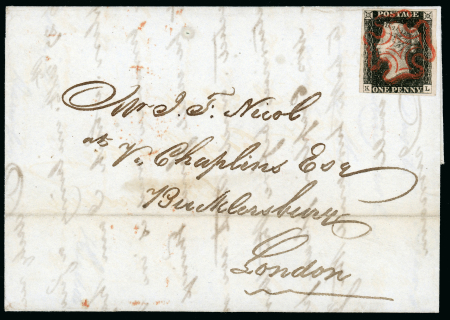 POSTAGE
ONE PENNY
L
Mr J. F. Nicol
at Chaplins Esq
Bucklersbury
London